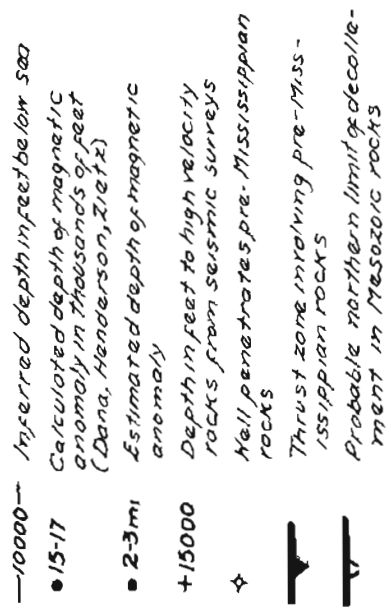 —10000— Inferred depth in feet below sea
• 15-17 Calculated depth of magnetic
anomaly in thousands of feet
(Dana, Henderson, Zietz)
• 2-3 mi Estimated depth of magnetic
anomaly
+15000 Depth in feet to high velocity
rocks from seismic surveys
Well penetrates pre-Mississippian
rocks
Thrust zone involving pre-Miss-
issippian rocks
Probable northern limit of decolle-
ment in Mesozoic rocks